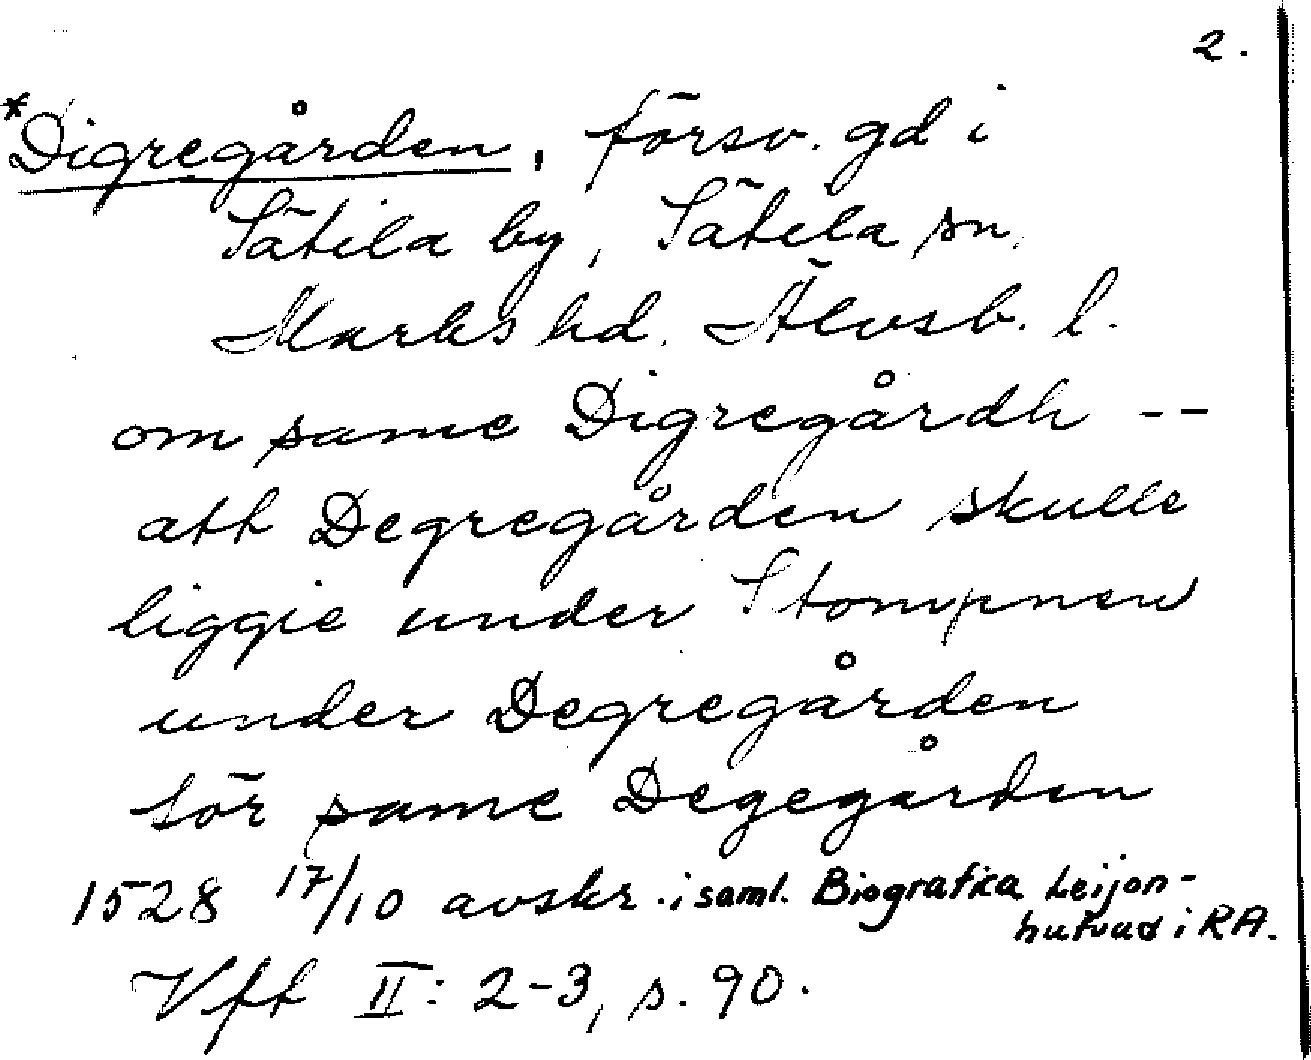 2.
*Digregården, försv. gd i
Sätila by, Sätila sn,
Marks hd. Älvsb. l.
om same Digregårdh --
att Degregården skulle
liggie under Stompnen
under Degregården
för same Degegården
1528 17/10 avskr. i saml. Biografica Leijon-
hufvud i RA.
Vft II: 2-3, s. 90.